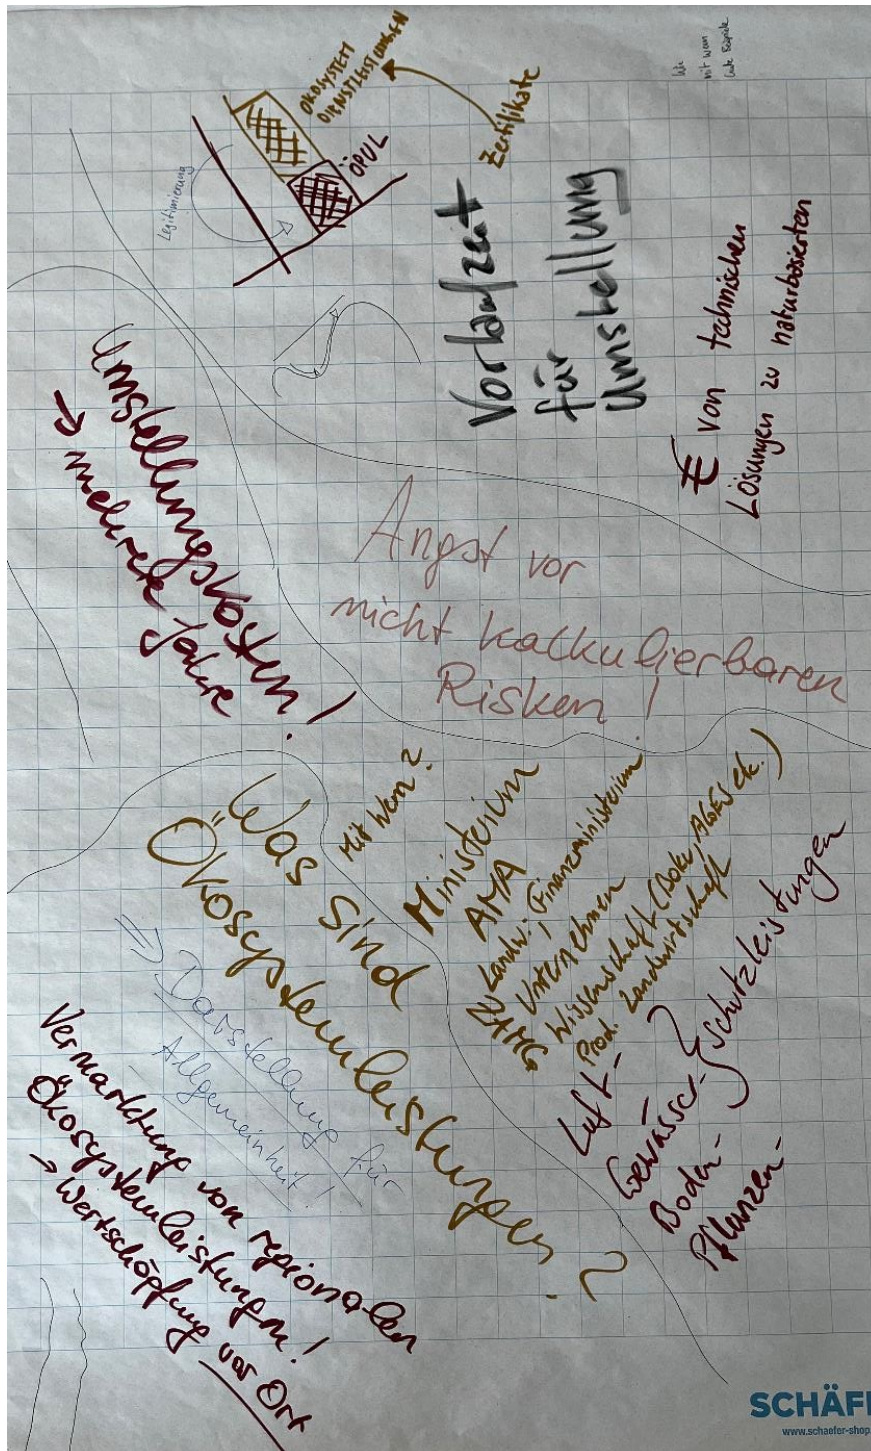 ÖKOSYSTEM
DIENSTLEISTUNGEN
Zertifikate
ÖPUL
Legitimierung
Wie
mit wem
Gute Beispiele
Vorlaufzeit
für
Umstellung
€ von technischen
Lösungen zu naturbasierten
Umstellungskosten!
→ mehrere Jahre
Angst vor
nicht kalkulierbaren
Risken!
Was sind
Ökosystemleistungen?
Mit Wem?
Ministerium
AMA
Landw.; Finanzministerium
Unternehmen
ZAMG
Wissenschaft (Boku, AGES etc.)
Prod. Landwirtschaft
Luft-
Gewässer-
Boden-
Pflanzen-
} Schutzleistungen
⇒ Darstellung für
Allgemeinheit!
Vermarktung von regionalen
Ökosystemleistungen!
→ Wertschöpfung vor Ort
SCHÄFE
www.schaefer-shop.